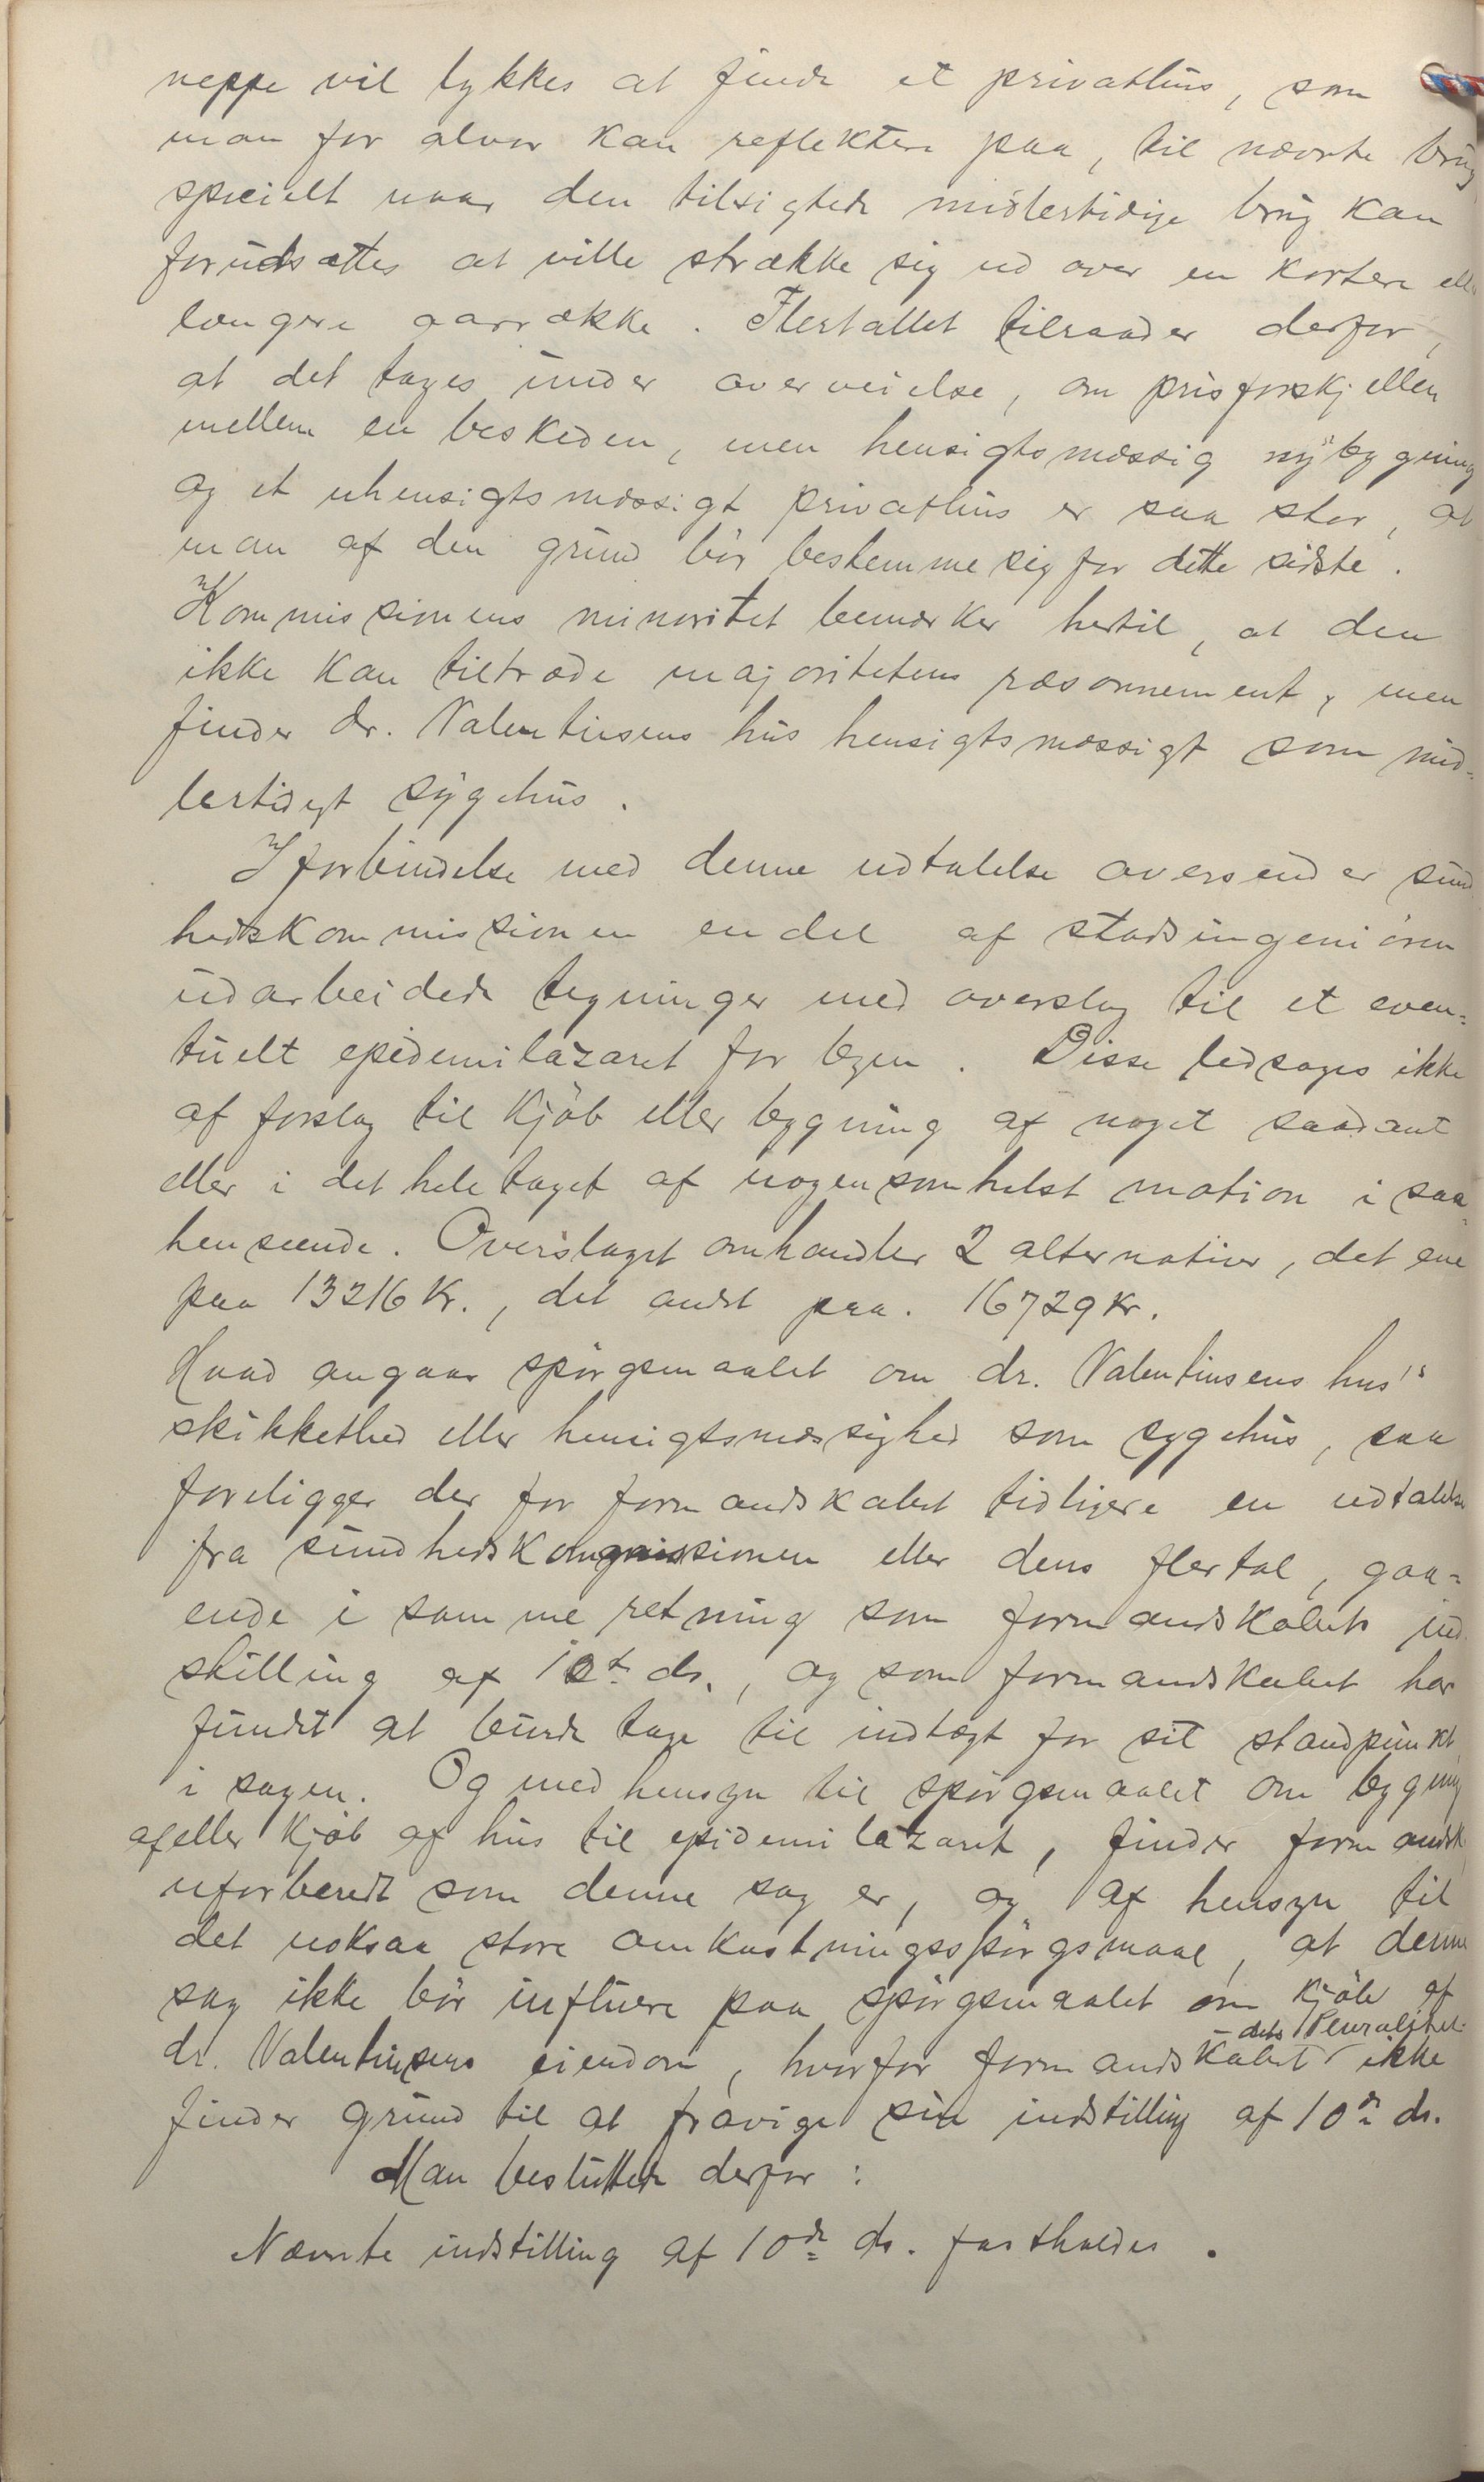 neppe vil lykkes at finde et privathus, som
man for alvor kan reflektere paa, til nævnte brug
specielt naar den tilsigtede midlertidige brug kan
forudsættes at ville strække sig ud over en kortere eller
længere aarrække. Flertallet tilraader derfor,
at det tages under overveielse, om prisforskjellen
mellem en beskeden, men hensigtsmæssig nybygning
og et uhensigtsmæssigt privathus er saa stor, at
man af den grund bør bestemme sig for dette sidste.
Kommissionens minoritet bemærker hertil, at den
ikke kan tiltræde majoritetens ræsonnement, men
finder dr. Valentinsens hus hensigtsmæssigt som mid=
lertidigt sygehus.
I forbindelse med denne udtalelse oversender sund
hedskommissionen en del af stadsingeniøren
udarbeidede tegninger med overslag til et even=
tuelt epidemilazaret for byen. Disse ledsages ikke
af forslag til kjøb eller bygning af noget saadant
eller i det hele taget af nogensomhelst motion i saa
henseende. Overslaget omhandler 2 alternativer, det ene
paa 13216 kr., det andet paa. 16729 kr.
Hvad angaar spørgsmaalet om dr. Valentinsens hus's
skikkethed eller hensigtsmæssighed som sygehus, saa
foreligger der for formandskabet tidligere en udtalelse
fra sundhedskommissionen eller dens flertal, gaa=
ende i samme retning som formandskabets ind
stilling af 10de ds., og som formandskabet har
fundet at burde tage til indtægt for sit standpunkt
i sagen. Og med hensyn til spørgsmaalet om bygning
af eller kjøb af hus til epidemilazaret, finder formandsk
uforberedt som denne sag er, og af hensyn til
det noksaa store omkostningsspørgsmaal, at denne
sag ikke bør influere paa spørgsmaalet om kjøb af
dr. Valentinsens eiendom, hvorfor formandskabet – dets Pluralitet – ikke
finder grund til at fravige sin indstilling af 10de ds.
Man besluttede derfor:
Nævnte indstilling af 10de ds. fastholdes.